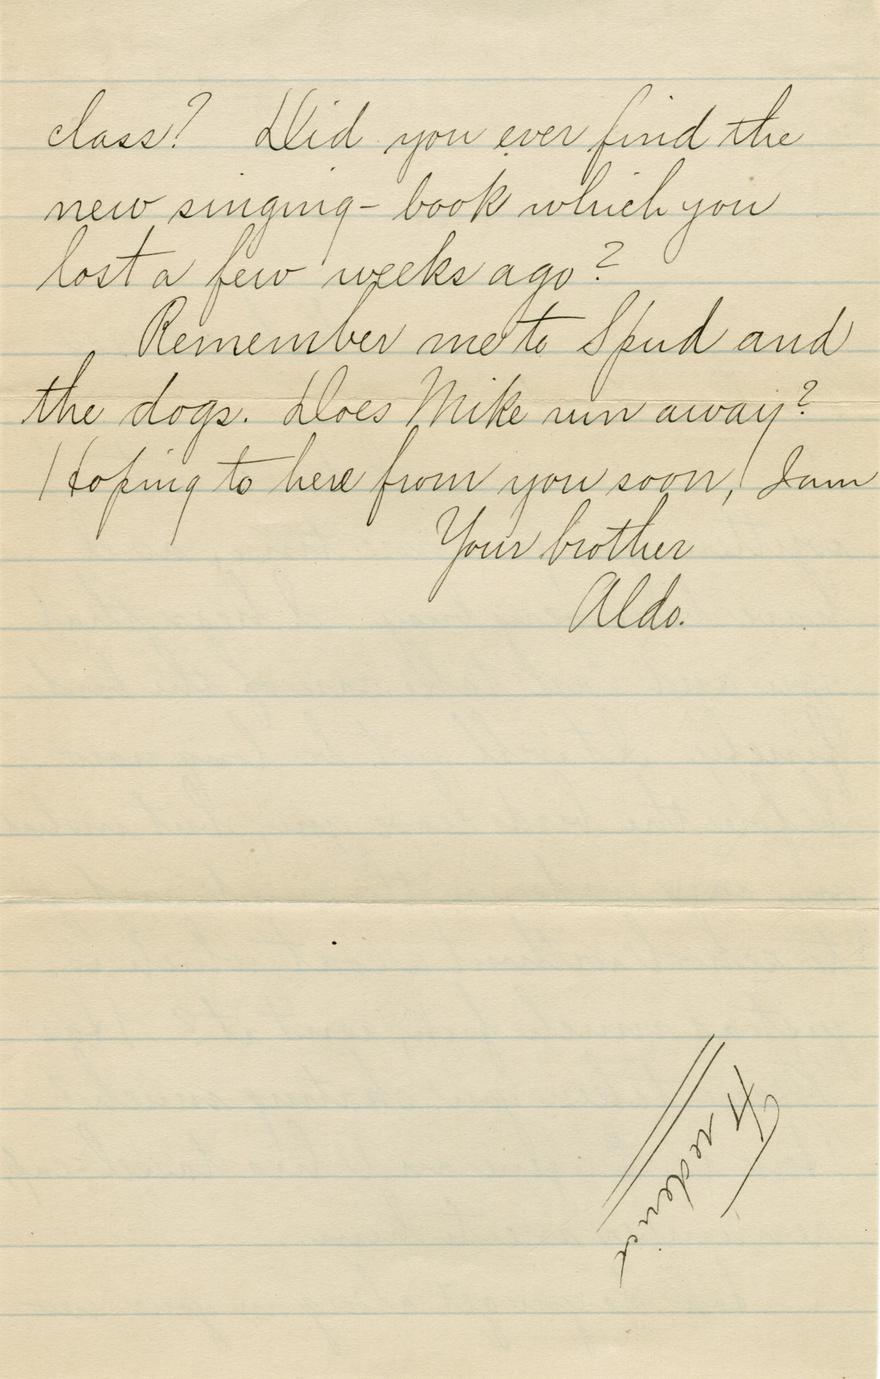 class? Did you ever find the
new singing-book which you
lost a few weeks ago?
Remember me to Spud and
the dogs. Does Mike run away?
Hoping to here from you soon, I am
Your brother
Aldo.
Frederick